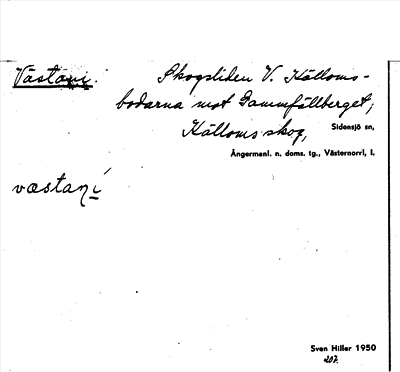 Västani.
Skogsliden V. Källoms-
bodarna mot Dammfällberget;
Källoms skog, Sidensjö sn,
Ångermanl. n. doms. tg., Västernorrl. l.
væstani
Sven Hiller 1950
207.